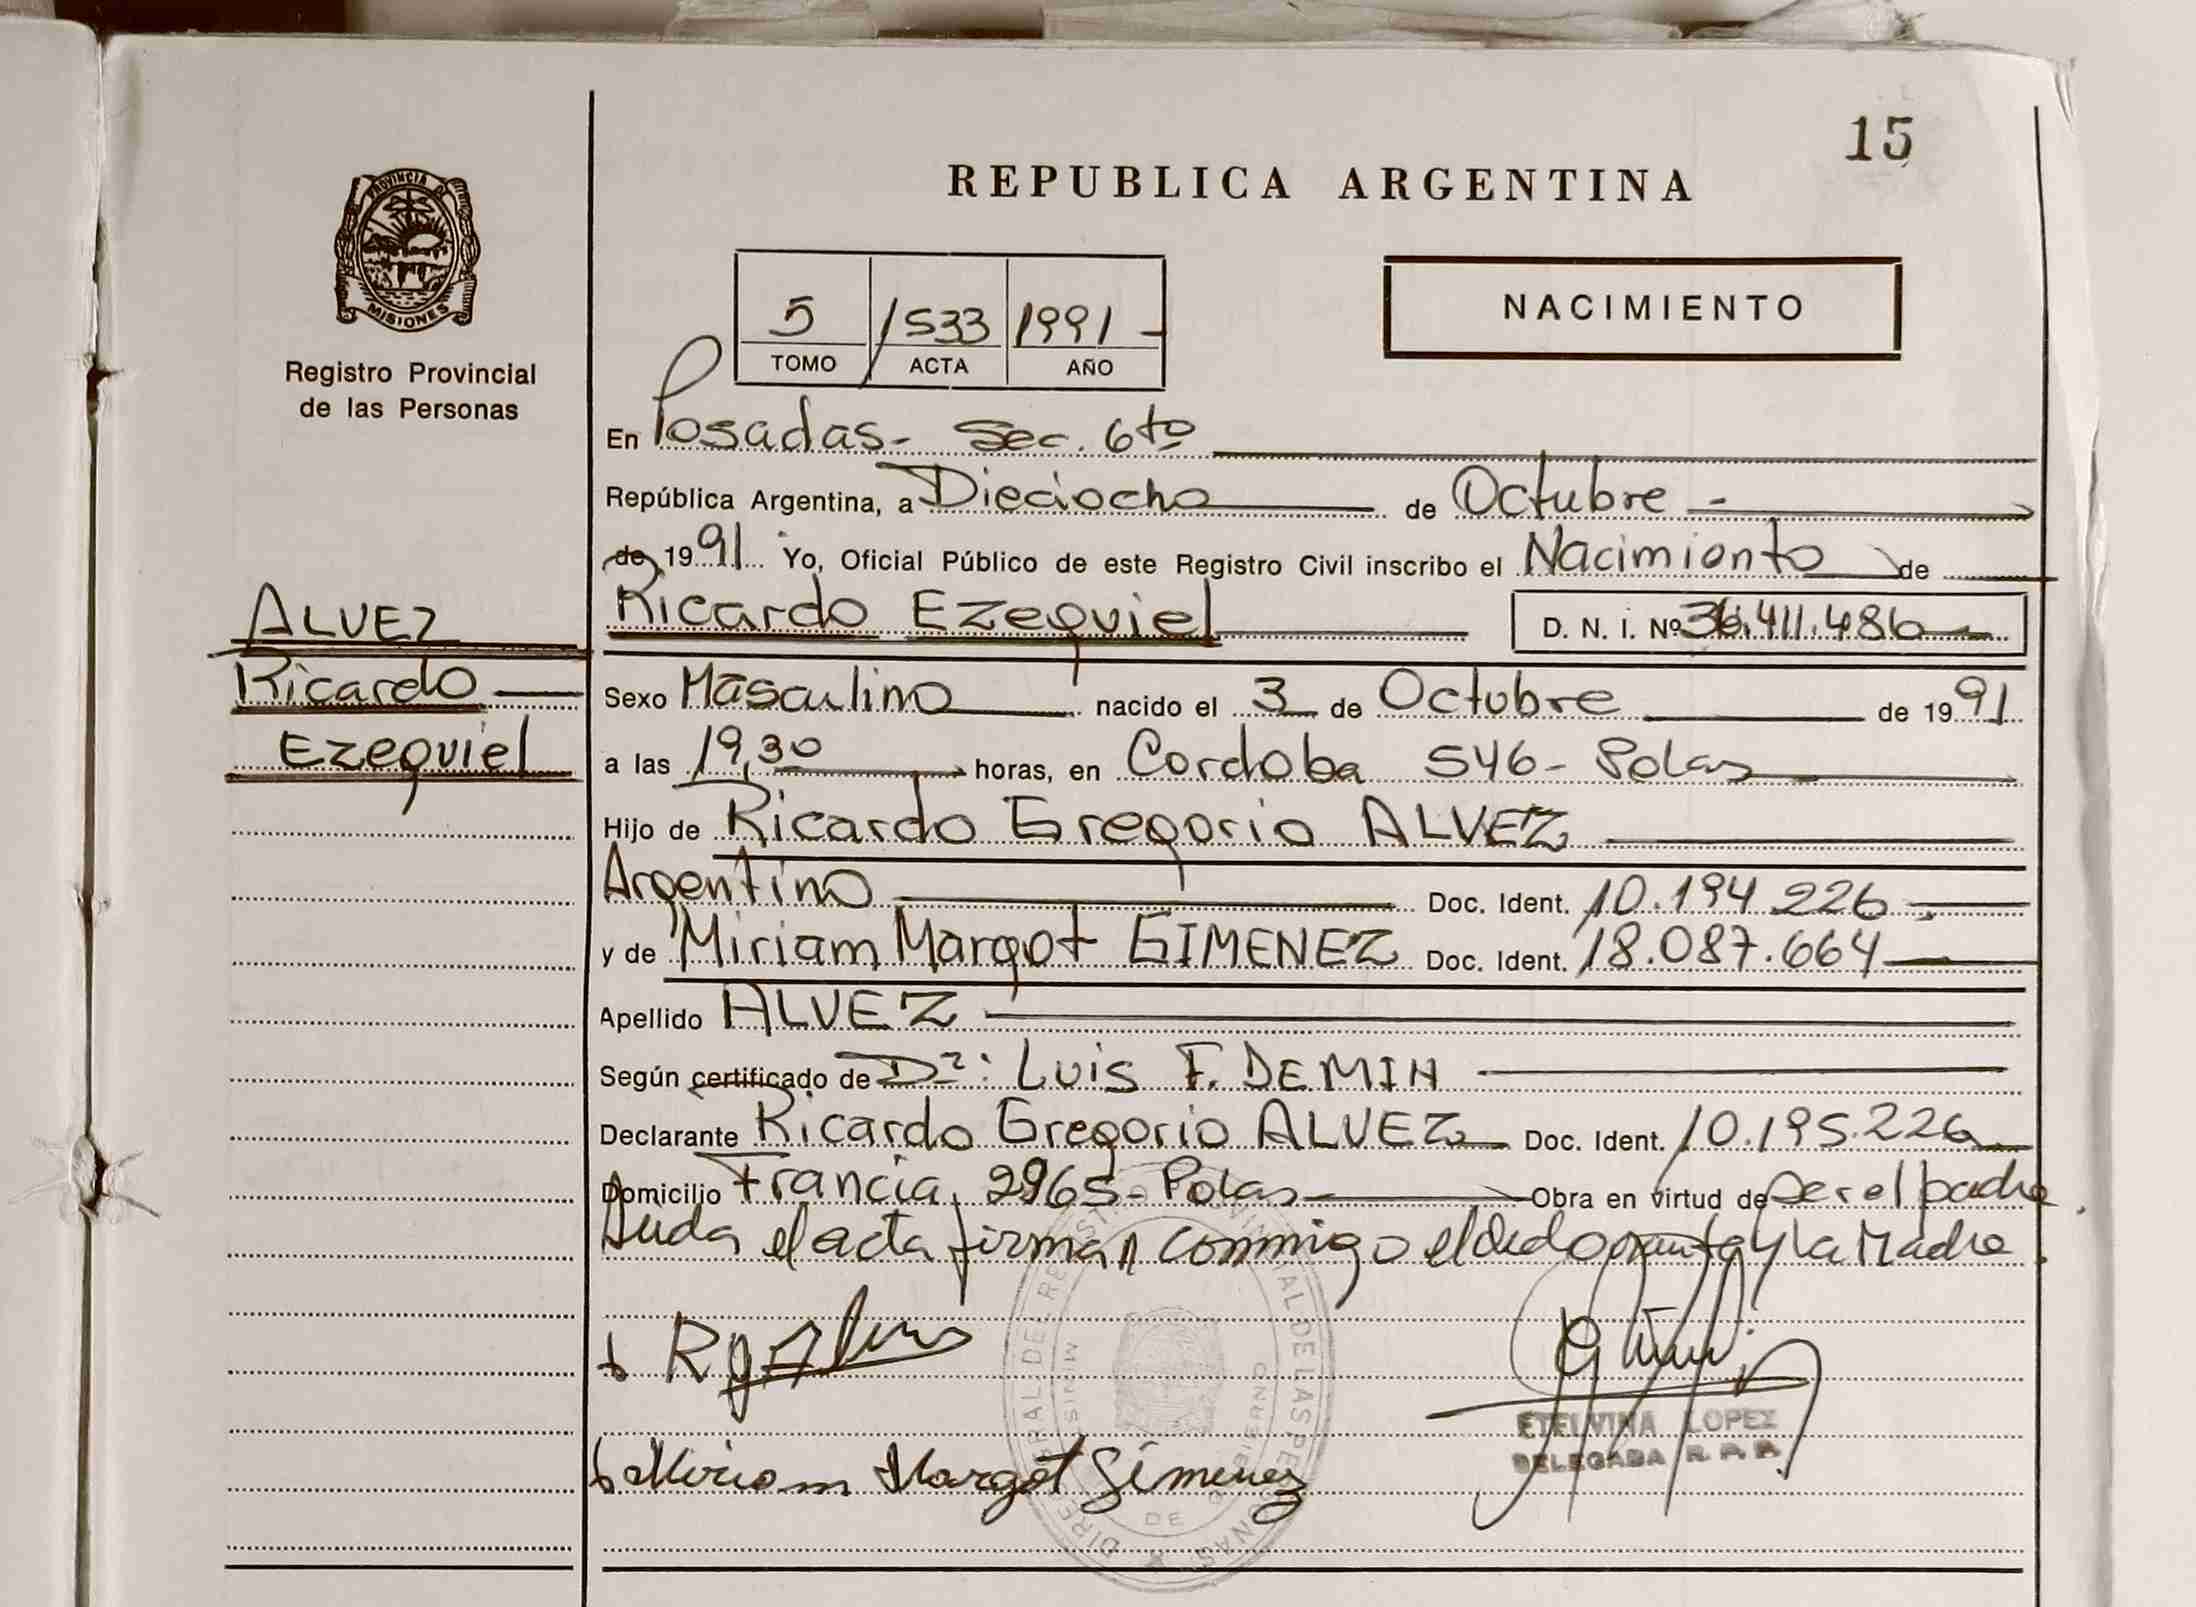 15
REPUBLICA ARGENTINA
PROVINCIA D MISIONES
Registro Provincial
de las Personas
NACIMIENTO
5 1533 1991 -
TOMO ACTA AÑO
En Posadas - Sec. 6to
República Argentina, a Dieciocho de Octubre -
de 1991 Yo, Oficial Público de este Registro Civil inscribo el Nacimiento de
Ricardo Ezequiel D. N. I. Nº 36.411.486
ALVEZ
Ricardo
Ezequiel
Sexo Masculino nacido el 3 de Octubre de 1991
a las 19,30 horas, en Cordoba 546 - Pdas
Hijo de Ricardo Gregorio ALVEZ
Argentino Doc. Ident. 10.194.226
y de Miriam Margot GIMENEZ Doc. Ident. 18.087.664
Apellido ALVEZ
Según certificado de Dr: Luis F. DEMIH
Declarante Ricardo Gregorio ALVEZ Doc. Ident. 10.195.226
Domicilio Francia 2965 - Pdas Obra en virtud de Ser el padre.
Leida el acta firman conmigo el declarante y la Madre.
Miriam Margot Gimenez
ETELVINA LOPEZ
DELEGADA R. P. P.
DIRE RAL DEL REGISTRO PROVINCIAL DE LAS PERSONAS
MINIS DE GOBIERNO